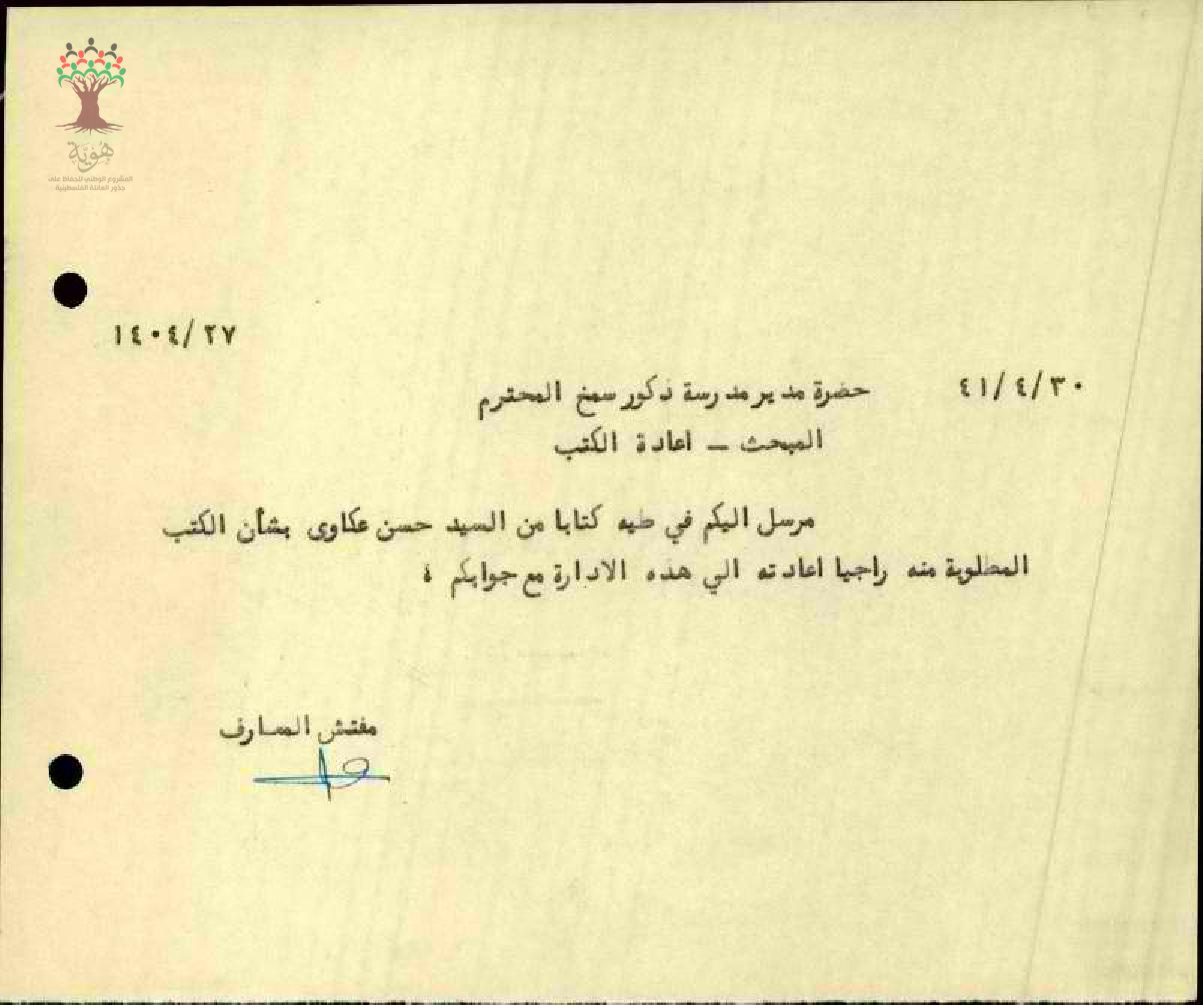 هوية
المشروع الوطني للحفاظ على
جذور العائلة الفلسطينية
١٤٠٤/٢٧
٤١/٤/٣٠
حضرة مدير مدرسة ذكور سمخ المحترم
المبحث – اعادة الكتب
مرسل اليكم في طيه كتابا من السيد حسن عكاوى بشأن الكتب
المطلوبة منه راجيا اعادته الي هذه الادارة مع جوابكم ؛
مفتش المعارف